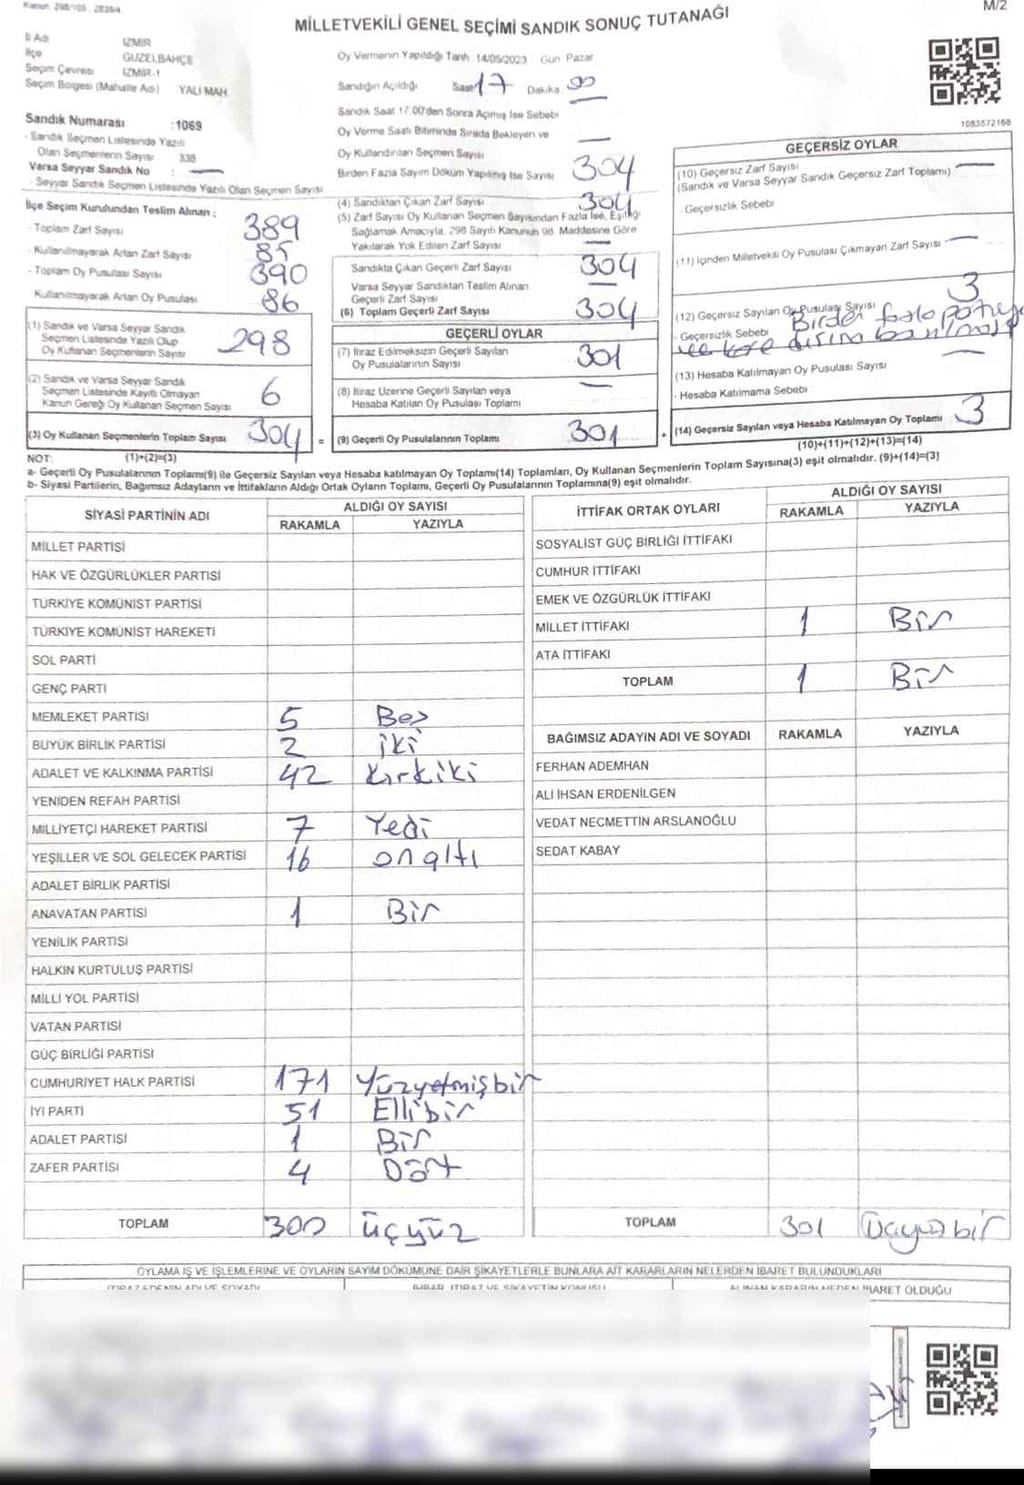 Kanun: 298/105 , 2839/4
M/2
MİLLETVEKİLİ GENEL SEÇİMİ SANDIK SONUÇ TUTANAĞI
İl Adı İZMİR
İlçe GÜZELBAHÇE
Seçim Çevresi İZMİR-1
Seçim Bölgesi (Mahalle Adı) YALI MAH.
Oy Vermenin Yapıldığı Tarih 14/05/2023 Gün Pazar
Sandığın Açıldığı Saat 17 Dakika 00
Sandık Saat 17.00'den Sonra Açılmış İse Sebebi
Oy Verme Saati Bitiminde Sırada Bekleyen ve
Oy Kullandırılan Seçmen Sayısı —
Birden Fazla Sayım Döküm Yapılmış İse Sayısı 304
1083572168
Sandık Numarası :1069
- Sandık Seçmen Listesinde Yazılı
Olan Seçmenlerin Sayısı 338
Varsa Seyyar Sandık No : —
- Seyyar Sandık Seçmen Listesinde Yazılı Olan Seçmen Sayısı
İlçe Seçim Kurulundan Teslim Alınan ;
- Toplam Zarf Sayısı 389
- Kullanılmayarak Artan Zarf Sayısı 85
- Toplam Oy Pusulası Sayısı 390
Kullanılmayarak Artan Oy Pusulası 86
(1) Sandık ve Varsa Seyyar Sandık
Seçmen Listesinde Yazılı Olup
Oy Kullanan Seçmenlerin Sayısı 298
(2) Sandık ve Varsa Seyyar Sandık
Seçmen Listesinde Kayıtlı Olmayan
Kanun Gereği Oy Kullanan Seçmen Sayısı 6
(3) Oy Kullanan Seçmenlerin Toplam Sayısı 304 =
(4) Sandıktan Çıkan Zarf Sayısı 304
(5) Zarf Sayısı Oy Kullanan Seçmen Sayısından Fazla İse, Eşitliği
Sağlamak Amacıyla, 298 Sayılı Kanunun 98. Maddesine Göre
Yakılarak Yok Edilen Zarf Sayısı —
Sandıkta Çıkan Geçerli Zarf Sayısı 304
Varsa Seyyar Sandıktan Teslim Alınan
Geçerli Zarf Sayısı —
(6) Toplam Geçerli Zarf Sayısı 304
GEÇERLİ OYLAR
(7) İtiraz Edilmeksizin Geçerli Sayılan
Oy Pusulalarının Sayısı 301
(8) İtiraz Üzerine Geçerli Sayılan veya
Hesaba Katılan Oy Pusulası Toplamı —
(9) Geçerli Oy Pusulalarının Toplamı 301 +
GEÇERSİZ OYLAR
(10) Geçersiz Zarf Sayısı —
(Sandık ve Varsa Seyyar Sandık Geçersiz Zarf Toplamı)
- Geçersizlik Sebebi
(11) İçinden Milletvekili Oy Pusulası Çıkmayan Zarf Sayısı —
(12) Geçersiz Sayılan Oy Pusulası Sayısı 3
- Geçersizlik Sebebi Birden fazla partiye
ve kare dışına basılması
(13) Hesaba Katılmayan Oy Pusulası Sayısı —
- Hesaba Katılmama Sebebi
(14) Geçersiz Sayılan veya Hesaba Katılmayan Oy Toplamı 3
NOT: (1)+(2)=(3)
(10)+(11)+(12)+(13)=(14)
a- Geçerli Oy Pusulalarının Toplamı(9) ile Geçersiz Sayılan veya Hesaba katılmayan Oy Toplamı(14) Toplamları, Oy Kullanan Seçmenlerin Toplam Sayısına(3) eşit olmalıdır. (9)+(14)=(3)
b- Siyasi Partilerin, Bağımsız Adayların ve İttifakların Aldığı Ortak Oyların Toplamı, Geçerli Oy Pusulalarının Toplamına(9) eşit olmalıdır.
SİYASİ PARTİNİN ADI ALDIĞI OY SAYISI
RAKAMLA YAZIYLA
MİLLET PARTİSİ
HAK VE ÖZGÜRLÜKLER PARTİSİ
TÜRKİYE KOMÜNİST PARTİSİ
TÜRKİYE KOMÜNİST HAREKETİ
SOL PARTİ
GENÇ PARTİ
MEMLEKET PARTİSİ 5 Beş
BÜYÜK BİRLİK PARTİSİ 2 iki
ADALET VE KALKINMA PARTİSİ 42 Kırkiki
YENİDEN REFAH PARTİSİ
MİLLİYETÇİ HAREKET PARTİSİ 7 Yedi
YEŞİLLER VE SOL GELECEK PARTİSİ 16 onaltı
ADALET BİRLİK PARTİSİ
ANAVATAN PARTİSİ 1 Bir
YENİLİK PARTİSİ
HALKIN KURTULUŞ PARTİSİ
MİLLİ YOL PARTİSİ
VATAN PARTİSİ
GÜÇ BİRLİĞİ PARTİSİ
CUMHURİYET HALK PARTİSİ 171 Yüzyetmişbir
İYİ PARTİ 51 Ellibir
ADALET PARTİSİ 1 Bir
ZAFER PARTİSİ 4 Dört
TOPLAM 300 üçyüz
İTTİFAK ORTAK OYLARI ALDIĞI OY SAYISI
RAKAMLA YAZIYLA
SOSYALİST GÜÇ BİRLİĞİ İTTİFAKI
CUMHUR İTTİFAKI
EMEK VE ÖZGÜRLÜK İTTİFAKI
MİLLET İTTİFAKI 1 Bir
ATA İTTİFAKI
TOPLAM 1 Bir
BAĞIMSIZ ADAYIN ADI VE SOYADI RAKAMLA YAZIYLA
FERHAN ADEMHAN
ALİ İHSAN ERDENİLGEN
VEDAT NECMETTİN ARSLANOĞLU
SEDAT KABAY
TOPLAM 301 Üçyüzbir
OYLAMA İŞ VE İŞLEMLERİNE VE OYLARIN SAYIM DÖKÜMÜNE DAİR ŞİKAYETLERLE BUNLARA AİT KARARLARIN NELERDEN İBARET BULUNDUKLARI
İTİRAZ EDENİN ADI VE SOYADI İHBAR, İTİRAZ VE ŞİKAYETİN KONUSU ALINAN KARARIN NEDEN İBARET OLDUĞU